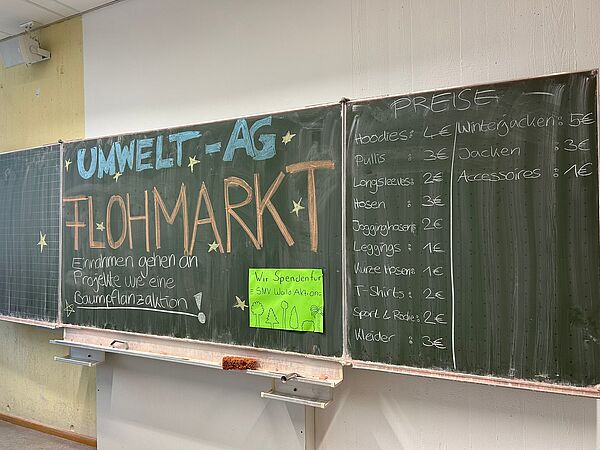 UMWELT - AG
FLOHMARKT
Einnahmen gehen an
Projekte wie eine
Baumpflanzaktion!
Wir Spenden für
SMV Wald Aktion
PREISE
Hoodies: 4€
Pullis: 3€
Longsleeves: 2€
Hosen: 3€
Jogginghosen: 2€
Leggings: 1€
Kurze Hosen: 1€
T-Shirts: 2€
Sport & Röcke: 2€
Kleider: 3€
Winterjacken: 5€
Jacken: 3€
Accessoires: 1€